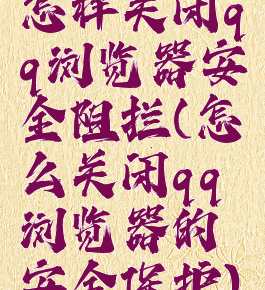 怎样关闭q
q浏览器安
全阻拦(怎
么关闭qq
浏览器的
安全保护)